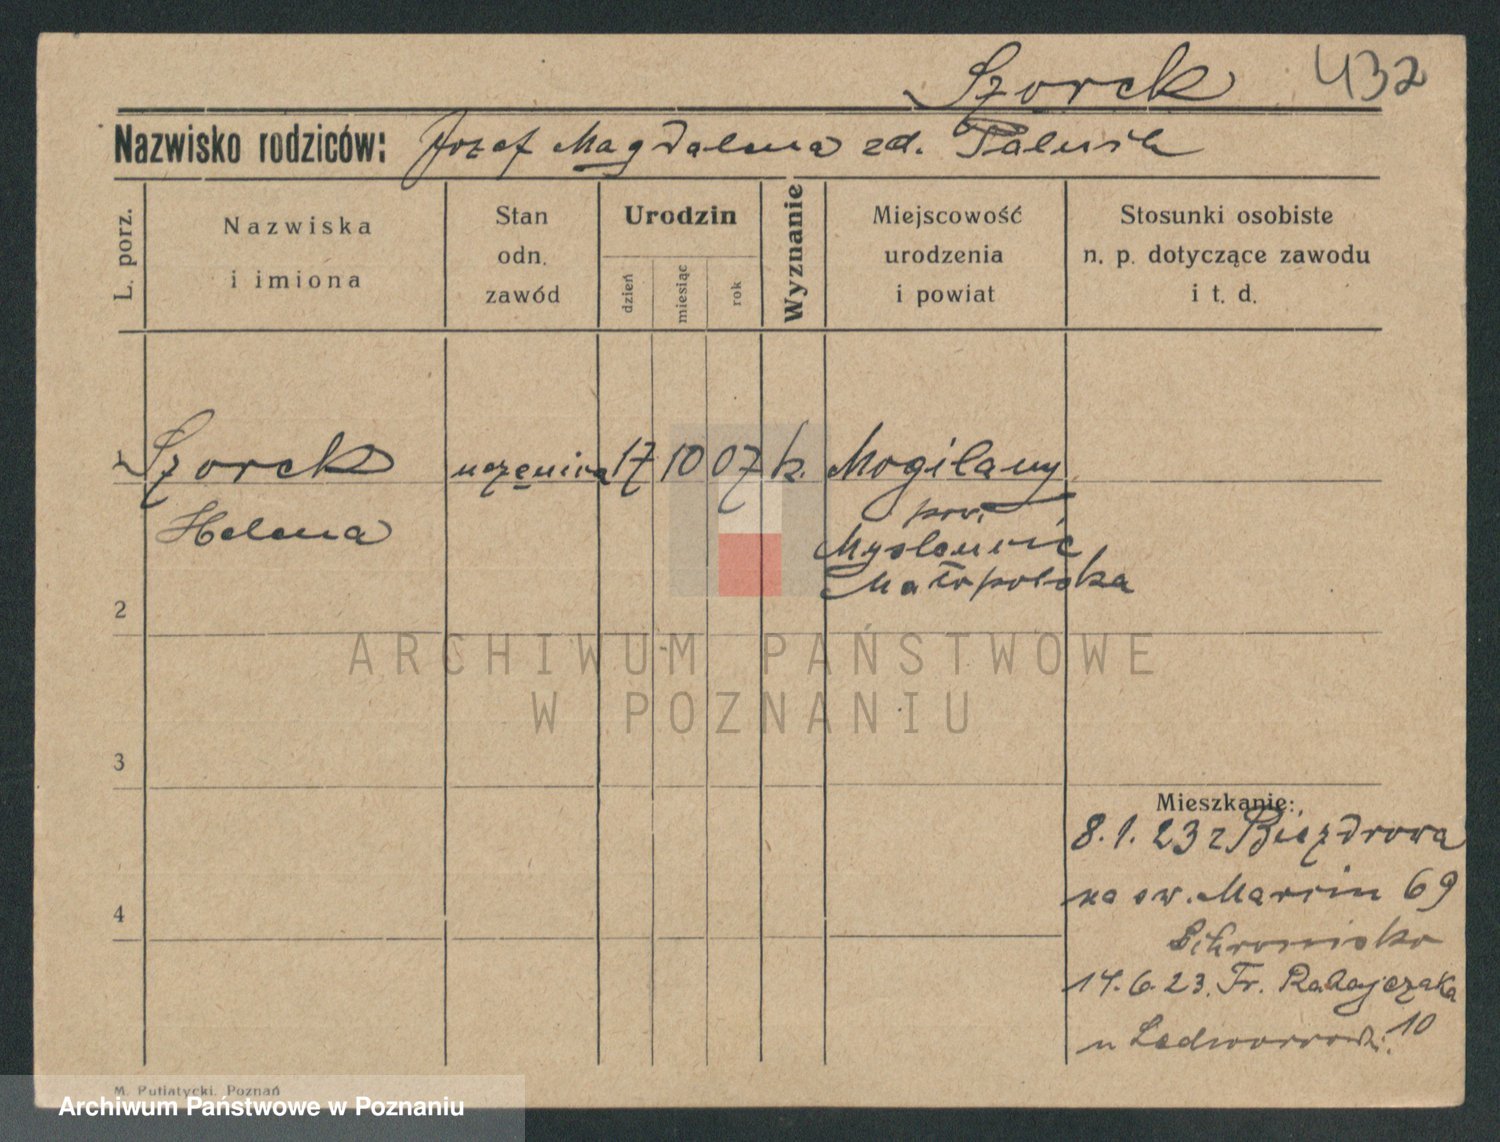 Szorck 432
Nazwisko rodziców: Józef Magdalena zd.
L. porz.
Nazwiska
i imiona
Stan
odn.
zawód
Urodzin
dzień
miesiąc
rok
Wyznanie
Miejscowość
urodzenia
i powiat
Stosunki osobiste
n. p. dotyczące zawodu
i t. d.
1 Szorck uczenica 17 10 07 k. Mogilany
Helena pow.
Myslenic
Małopolska
2
3
4
ARCHIWUM PAŃSTWOWE
W POZNANIU
Mieszkanie:
8.1.23 z Biezdrowa
na św. Marcin 69
Schronisko
14.6.23. Fr. Ratajczaka
u 10
M. Putiatycki, Poznań
Archiwum Państwowe w Poznaniu